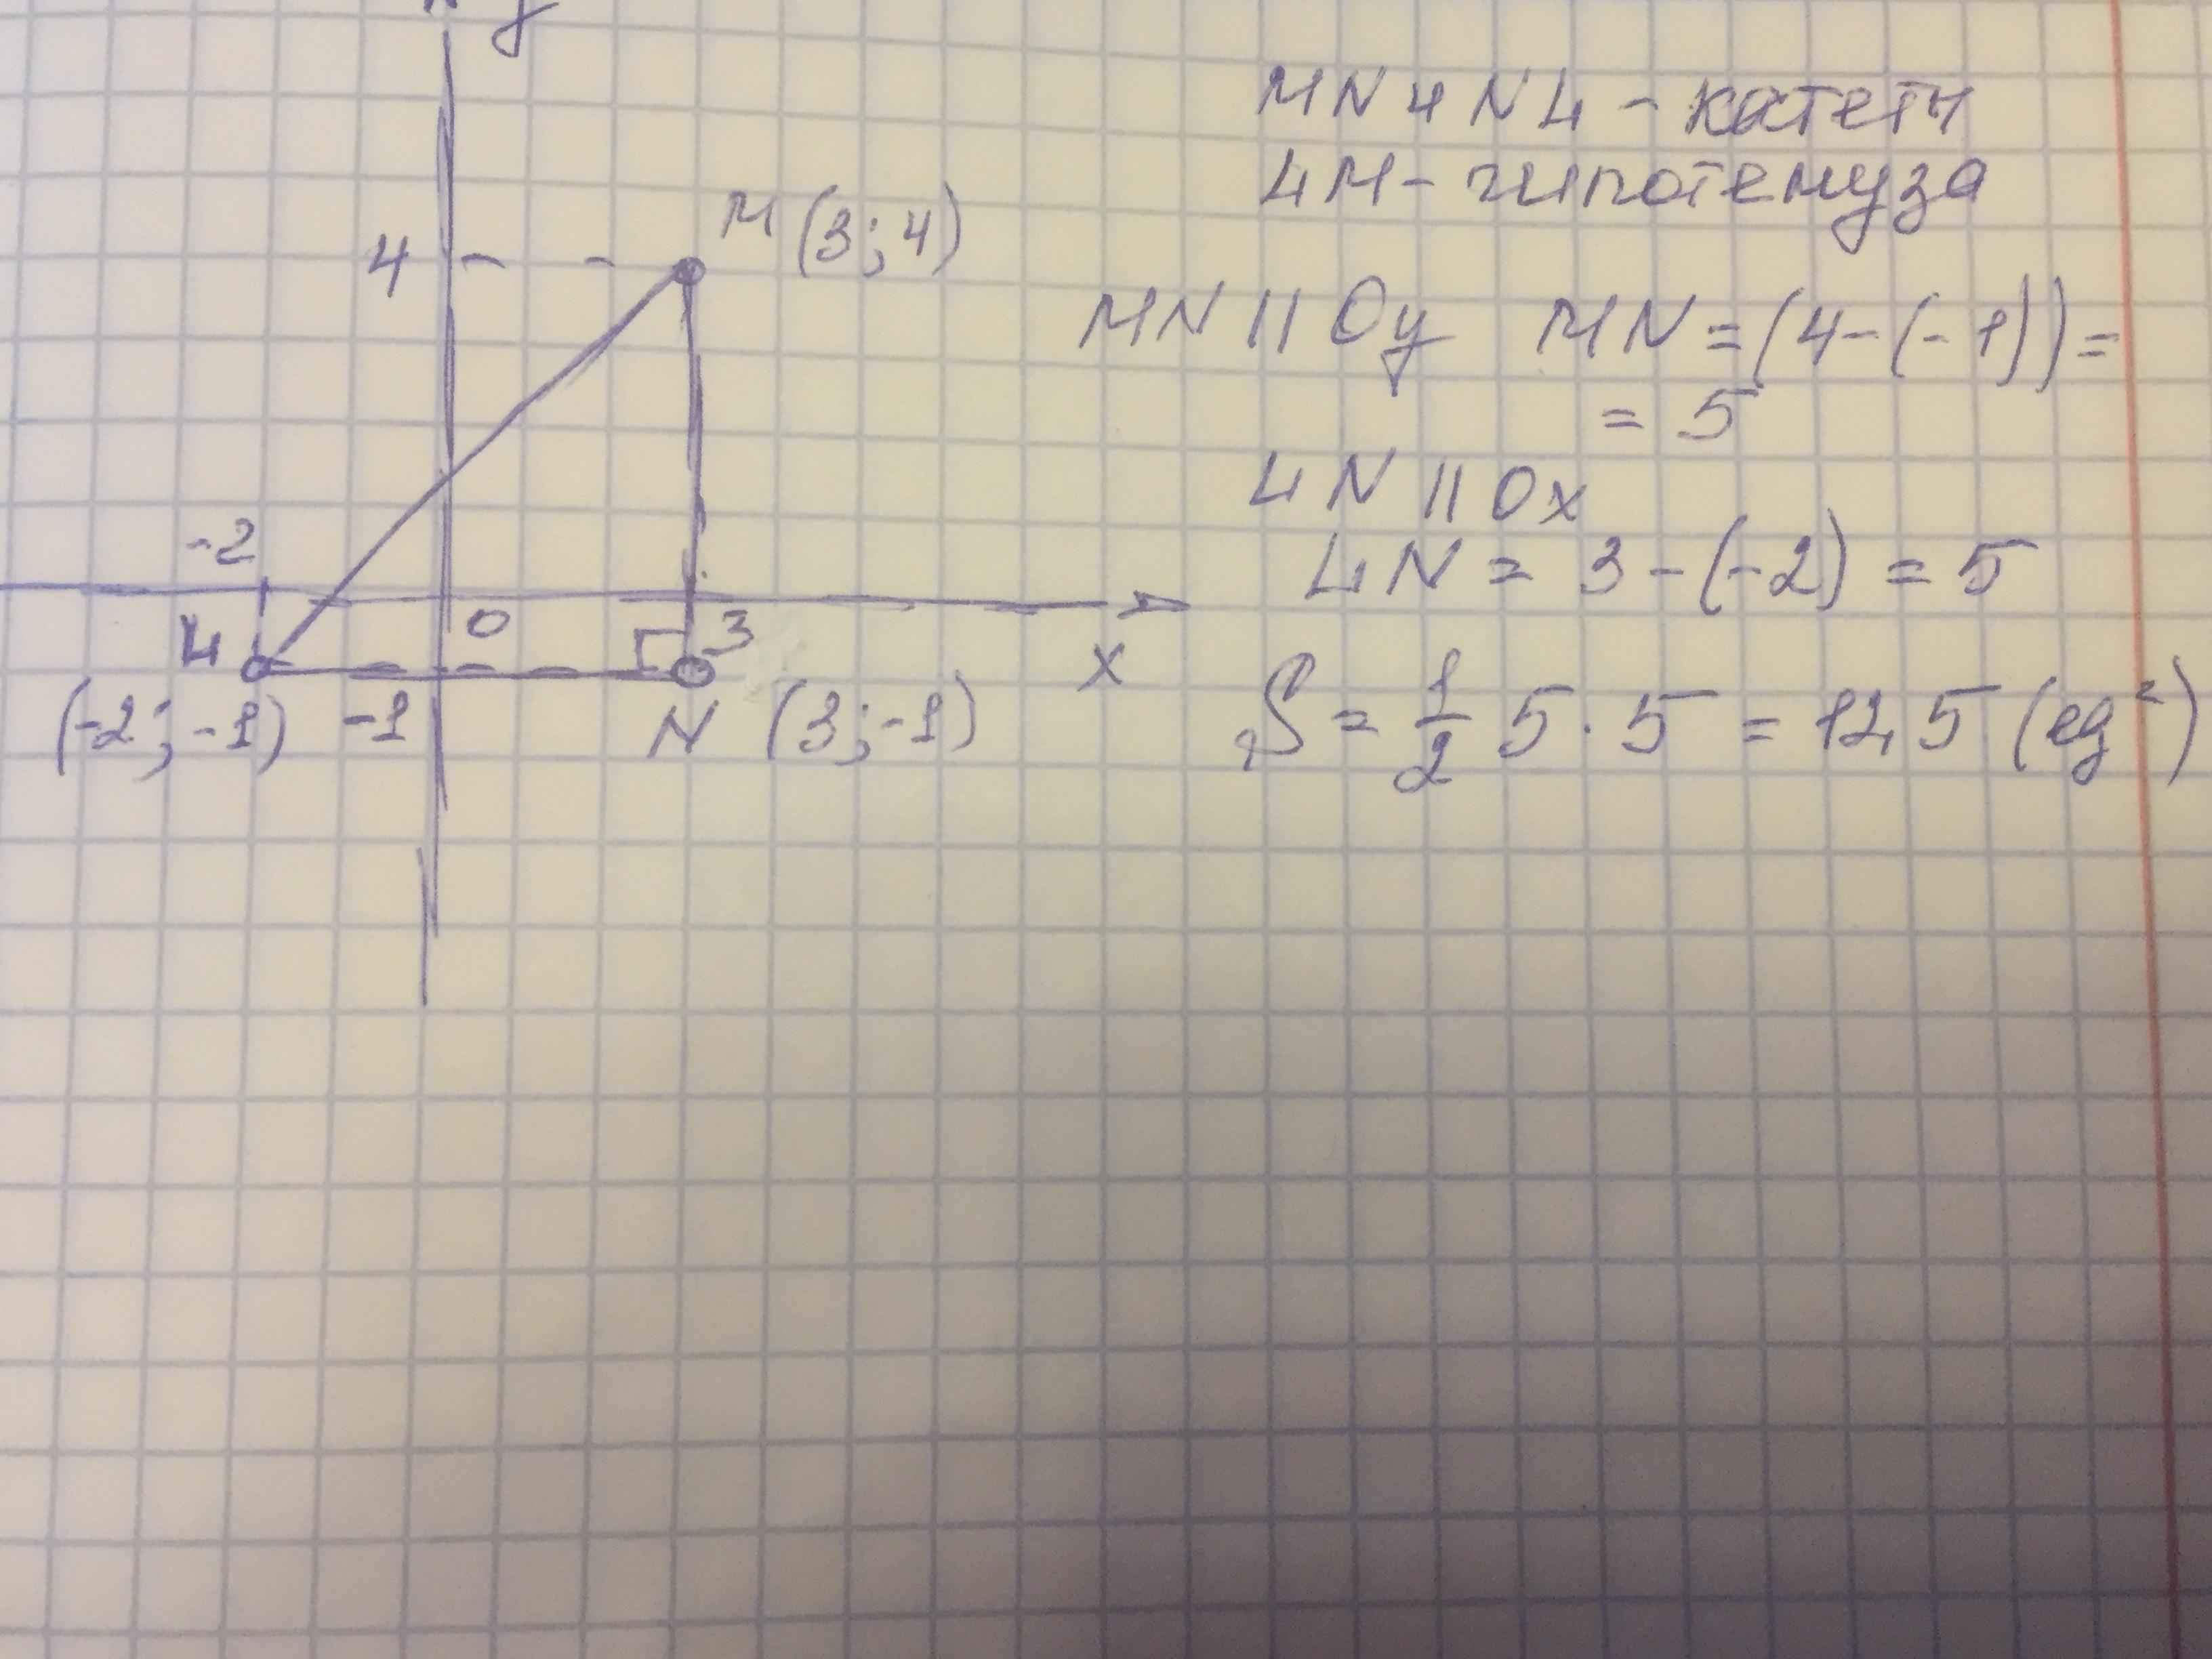 y
MN и NL - катеты
LM - гипотенуза
M (3; 4)
4
MN || Oy MN = (4-(-1)) =
= 5
LN || Ox
-2
LN = 3 - (-2) = 5
L
0
3
x
(-2; -1) -1
N (3; -1)
S = 1/2 5 · 5 = 12,5 (ед²)